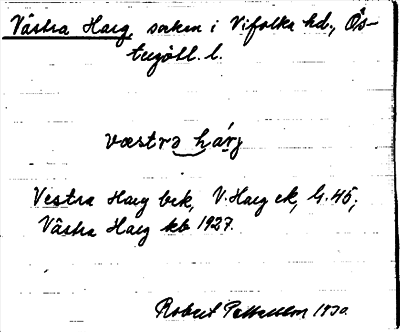 Västra Harg, socken i Vifolka hd., Ös-
tergötl. l.
væstrə hárj
Vestra Harg bek, V. Harg ek, G. 45;
Västra Harg kb 1927.
Robert 1930.